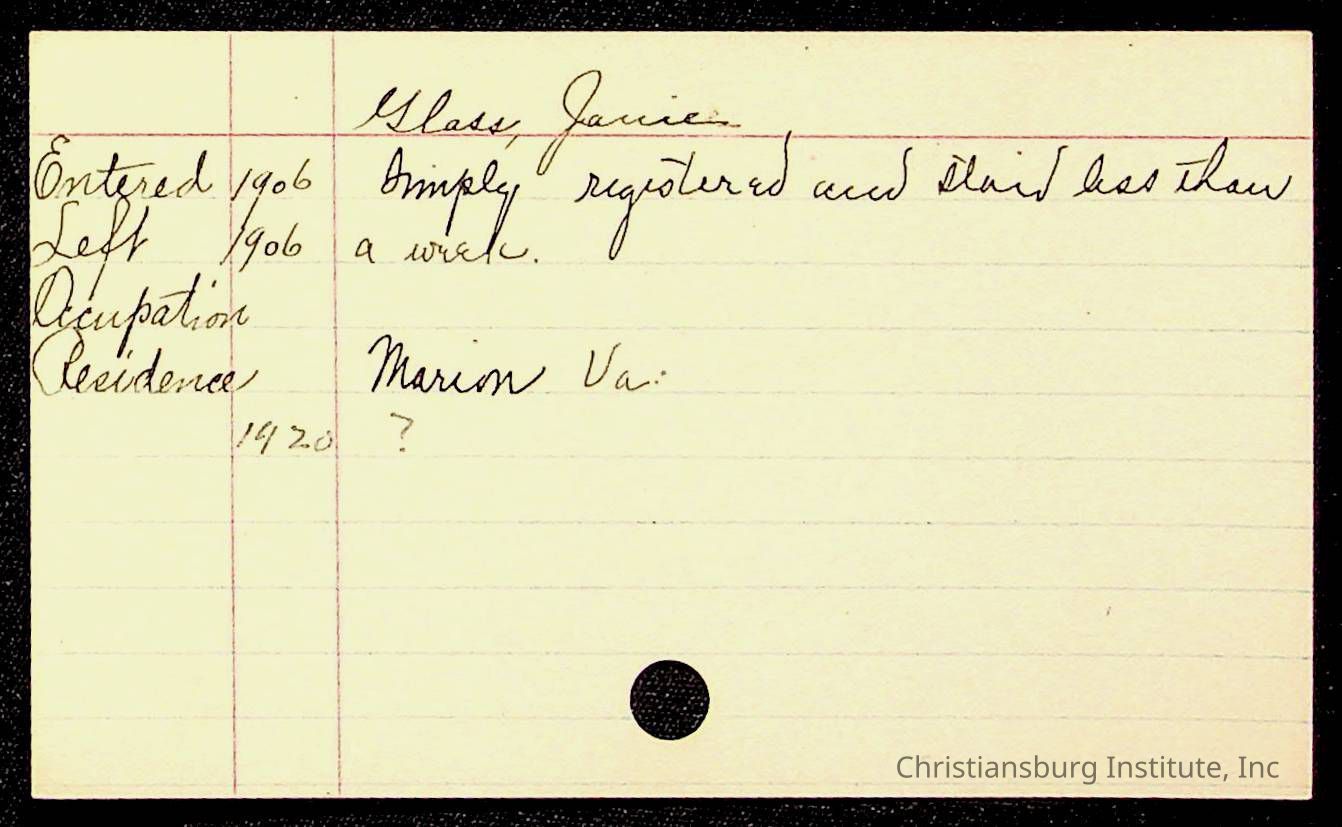 Glass, Janie
Entered 1906 Simply registered and staid less than
Left 1906 a week.
Occupation
Residence Marion Va.
1920 ?
Christiansburg Institute, Inc